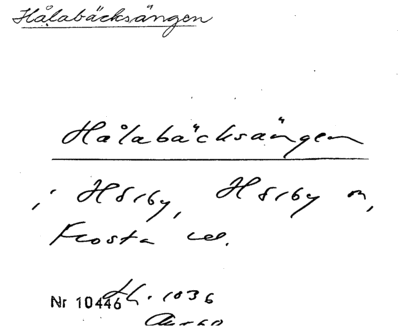 Hålabäcksängen
Hålabäcksängen
i Hörby, Hörby
Frosta
Nr 10446 1036